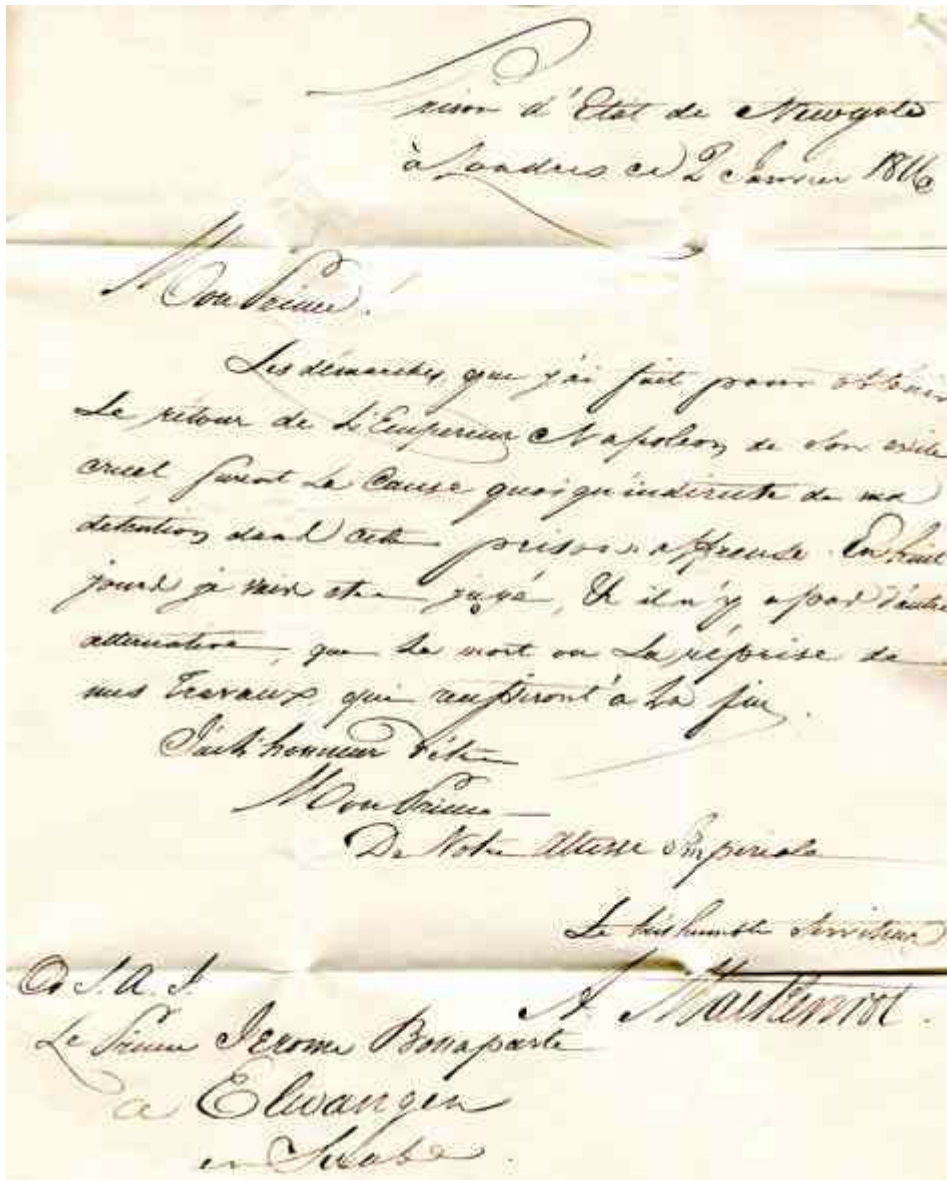 Prison d'Etat de Newgate
à Londres ce 2 Janvier 1816
Mon Prince!
Les démarches, que j'ai fait pour obtenir
Le retour de L'Empereur Napoleon de Son exile
cruel furent La Cause quoiqu'indirecte de ma
détention dans cette prison affreuse. En huit
jours je vais etre jugé, Et il n'y a pas d'autre
alternative, que La mort ou La réprise de
mes Travaux, qui reussiront à La fin.
J'ai L'honneur d'être
Mon Prince
De Votre Altesse Imperiale
Le très humble Serviteur
A.
A S. A. I.
Le Prince Jerome Bonaparte
a Elwangen
en Suabe.